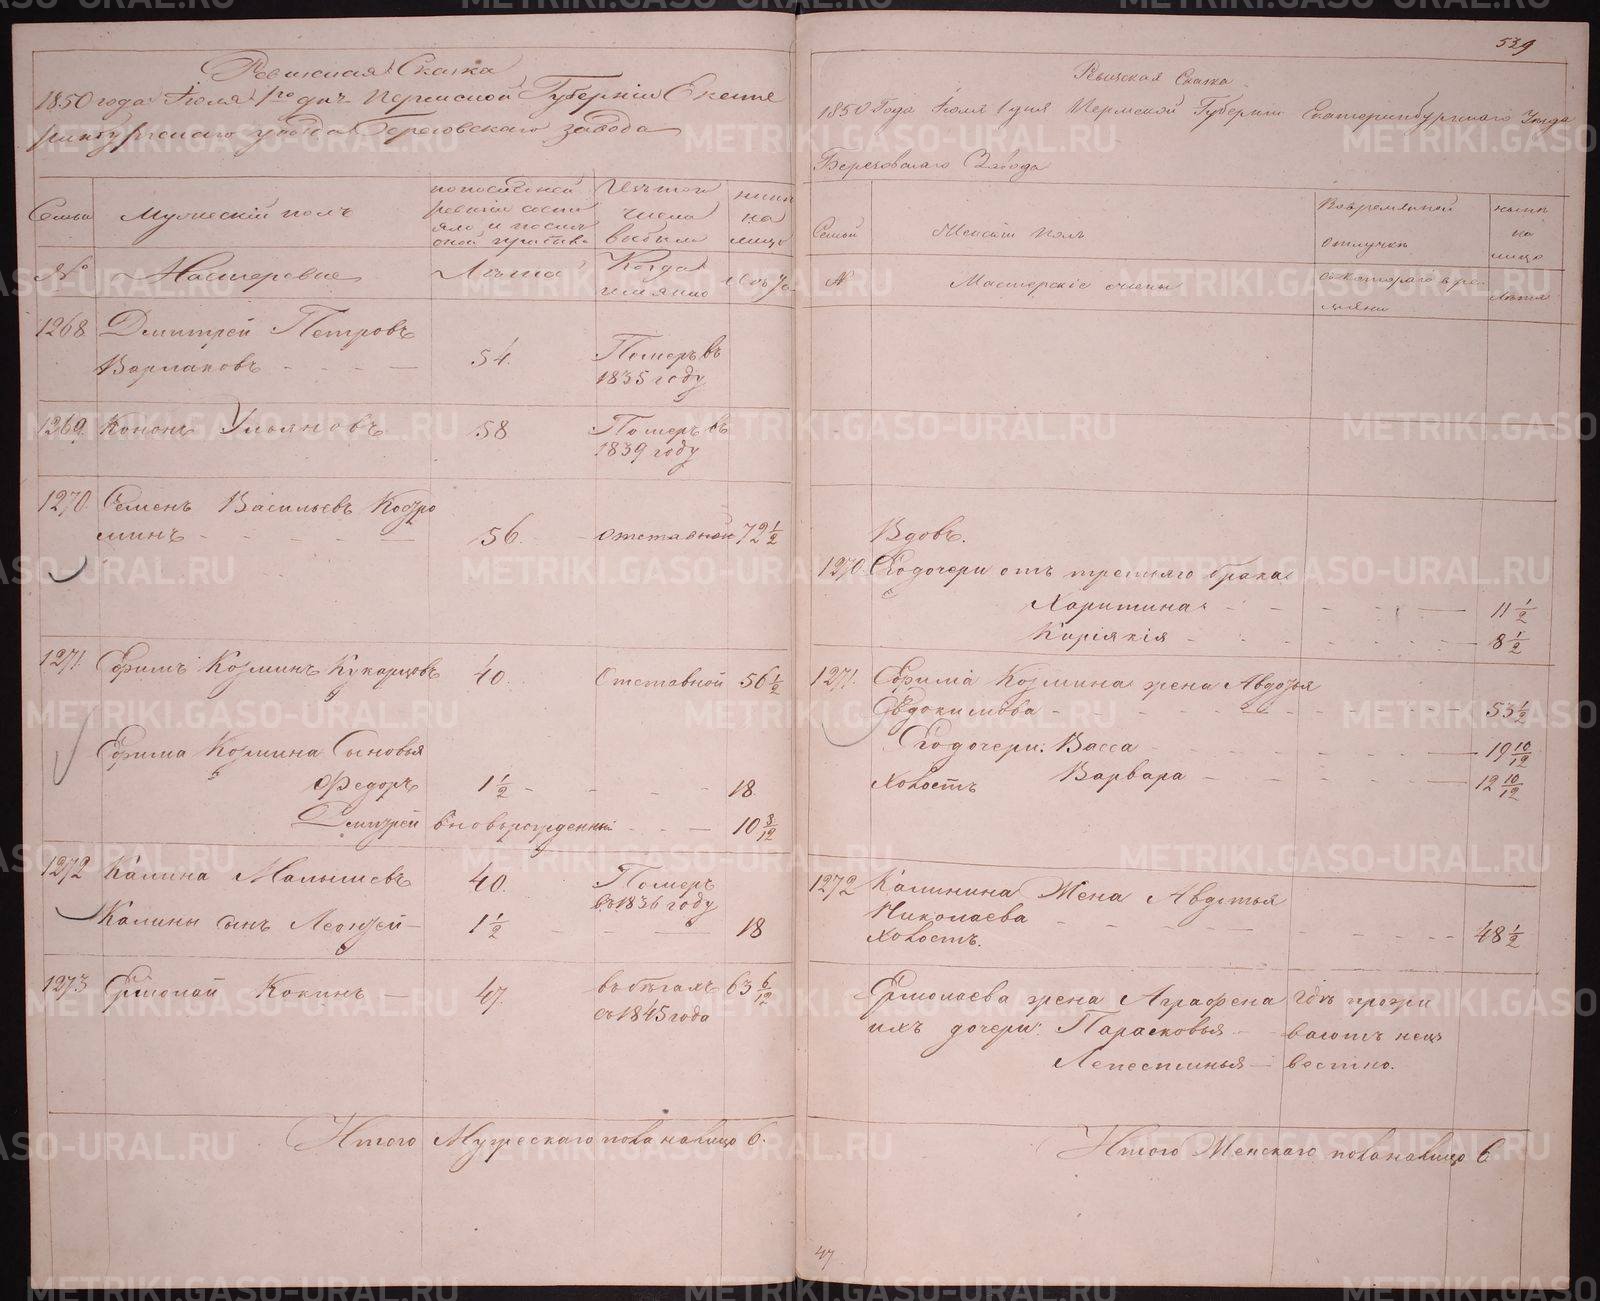 Ревизская Сказка
1850 года Іюля 1го дня Пермской Губерніи Екате
ринбургскаго уѣзда Березовскаго завода
Семьи
Мужескій полъ
по последней ревизіи состояло и после оной прибыло
Изъ того числа выбыло
ныне на лицо
№
Мастерскіе
Лѣта
Когда имянно
1268 Дмитрей Петровъ
Варлаковъ 54. Померъ въ
1835 году
1269. Кононъ Ульяновъ 58 Померъ въ
1839 году
1270. Семенъ Васильевъ Козро
минъ 56. отставной 72 1/2
1271. Ефимъ Козминъ Кукарцовъ 40. Отставной 56 1/2
Ефима Козмина Сыновья
Федоръ 1 1/2 18.
Дмитрей вновьрожденный 10 8/12
1272 Калина Малышевъ 40. Померъ
въ 1836 году
Калины сынъ Леонтей 1 1/2 18
1273 Ермолай Кокинъ 47. въ бѣгахъ 63 6/12
съ 1845 года
Итого Мужескаго пола налицо 6.
539
Ревизская Сказка
1850 Года Іюля 1 дня Пермской Губерніи Екатеринбургскаго Уѣзда
Березовскаго Завода
Семьи
Женскій Полъ
Во временной отлучке
ныне на лицо
№
Мастерскіе жены
С котораго времяни
Лѣта
Вдовъ.
1270. Его дочери отъ третьяго брака
Харитина 11 1/2
Кирiякiя 8 1/2
1271. Ефима Козмина жена Авдотья
Евдокимова 53 1/2
Его дочери: Васса 19 10/12
Варвара 12 10/12
Холостъ
1272 Калинина Жена Авдотья
Николаева 48 1/2
Холостъ.
Ермолаева жена Аграфена Где прожи
ихъ дочери: Парасковья ваютъ неиз
Лепестинья вестно.
Итого Женскаго пола налицо 6
47
METRIKI.GASO-URAL.RU